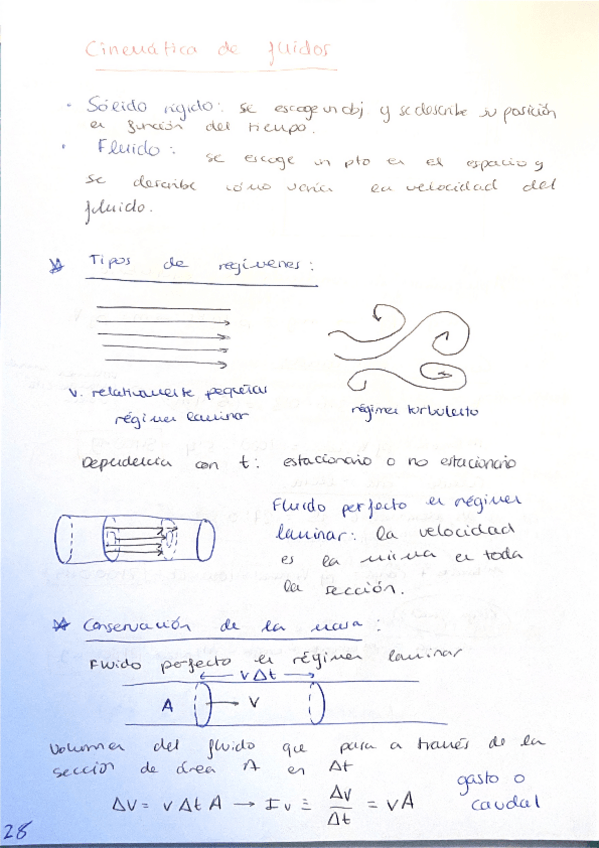 Cinemática de fluidos
· Sólido rígido: se escoge un obj y se describe su posición
en función del tiempo.
· Fluido: se escoge un pto en el espacio y
se describe cómo varía la velocidad del
fluido.
Tipos de regímenes:
v. relativamente pequeñas
régimen laminar
régimen turbulento
Dependencia con t: estacionario o no estacionario
Fluido perfecto en régimen
laminar: la velocidad
es la misma en toda
la sección.
Conservación de la masa:
Fluido perfecto en régimen laminar
v Δt
A
v
Volumen del fluido que pasa a través de la
sección de área A en Δt
ΔV = v Δt A → Iv ≡ ΔV/Δt = vA
gasto o
caudal
28